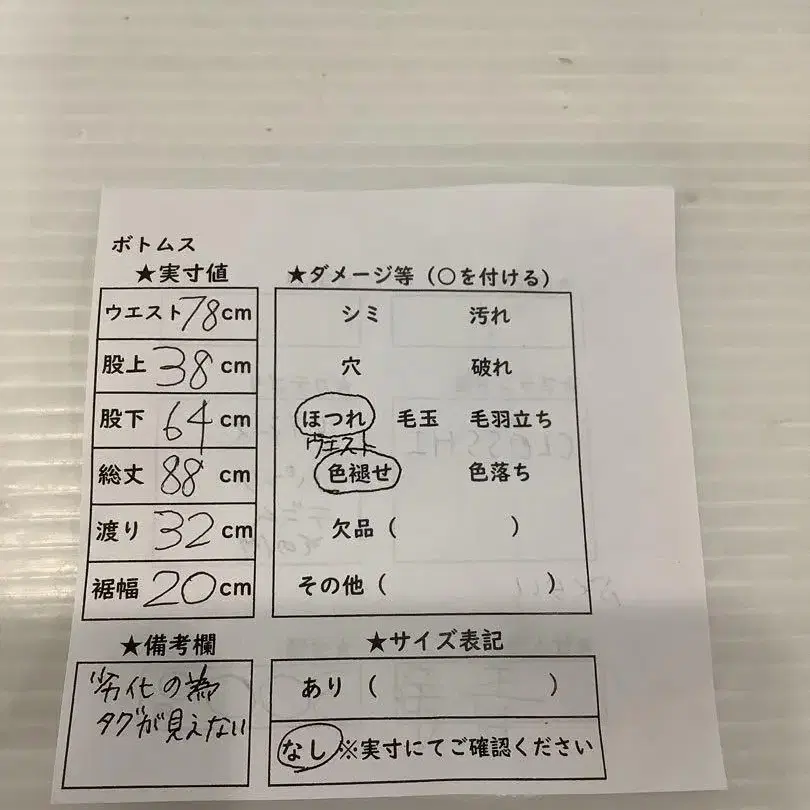 ボトムス
★実寸値
ウエスト78cm
股上38cm
股下64cm
総丈88cm
渡り32cm
裾幅20cm
★ダメージ等（〇を付ける）
シミ 汚れ
穴 破れ
ほつれ 毛玉 毛羽立ち
ウエスト
色褪せ 色落ち
欠品（ ）
その他（ ）
★備考欄
劣化の為
タグが見えない
★サイズ表記
あり（ ）
なし※実寸にてご確認ください